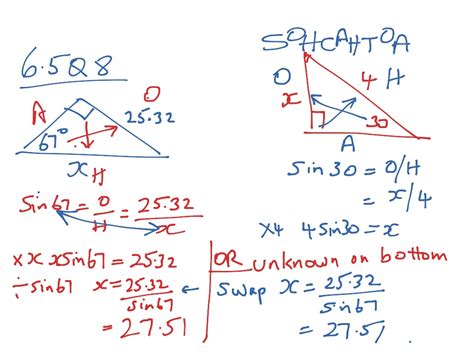 6.5Q8
A
O
25.32
67°
x H
Sin67 = O/H = 25.32/x
×x xsin67 = 25.32
÷sin67 x = 25.32/sin67
= 27.51
SOHCAHTOA
O
4 H
x
30
A
Sin30 = O/H
= x/4
×4 4Sin30 = x
OR unknown on bottom
Swap x = 25.32/sin67
= 27.51